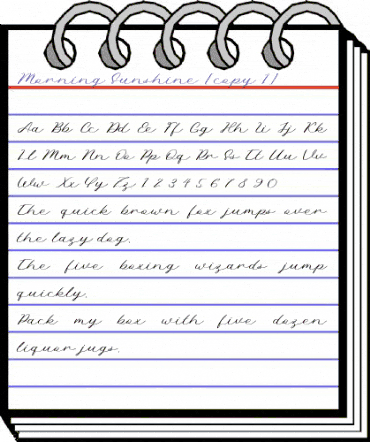 Morning Sunshine (copy 1)
Aa Bb Cc Dd Ee Ff Gg Hh Ii Jj Kk
Ll Mm Nn Oo Pp Qq Rr Ss Tt Uu Vv
Ww Xx Yy Zz 1 2 3 4 5 6 7 8 9 0
The quick brown fox jumps over
the lazy dog.
The five boxing wizards jump
quickly.
Pack my box with five dozen
liquor jugs.